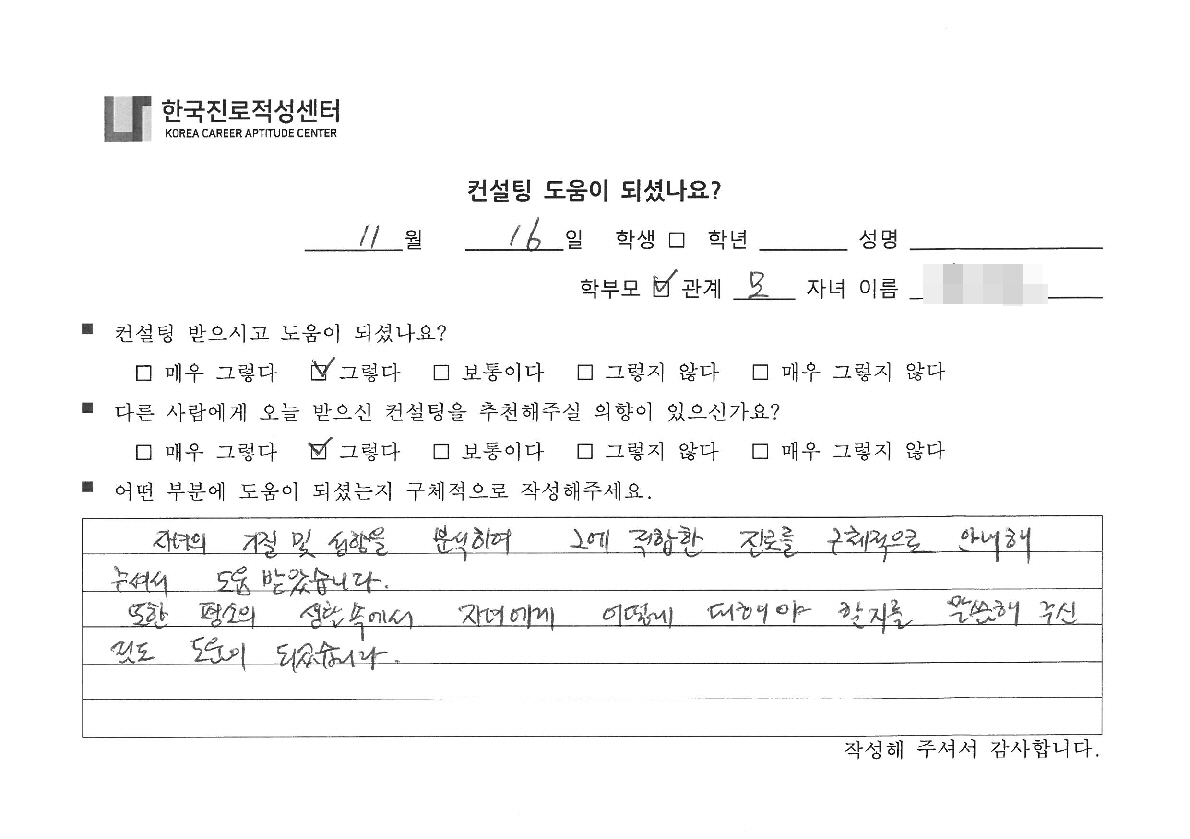 한국진로적성센터
KOREA CAREER APTITUDE CENTER
컨설팅 도움이 되셨나요?
11 월 16 일 학생 □ 학년 성명
학부모 ☑ 관계 모 자녀 이름
■ 컨설팅 받으시고 도움이 되셨나요?
□ 매우 그렇다 ☑ 그렇다 □ 보통이다 □ 그렇지 않다 □ 매우 그렇지 않다
■ 다른 사람에게 오늘 받으신 컨설팅을 추천해주실 의향이 있으신가요?
□ 매우 그렇다 ☑ 그렇다 □ 보통이다 □ 그렇지 않다 □ 매우 그렇지 않다
■ 어떤 부분에 도움이 되셨는지 구체적으로 작성해주세요.
자녀의 기질 및 성향을 분석하여 그에 적합한 진로를 구체적으로 안내해
주셔서 도움 받았습니다.
또한 평소의 생활 속에서 자녀에게 어떻게 대해야 할지를 말씀해 주신
것도 도움이 되었습니다.
작성해 주셔서 감사합니다.